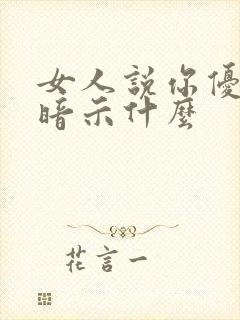 女人説你優
暗示什麼
花言一